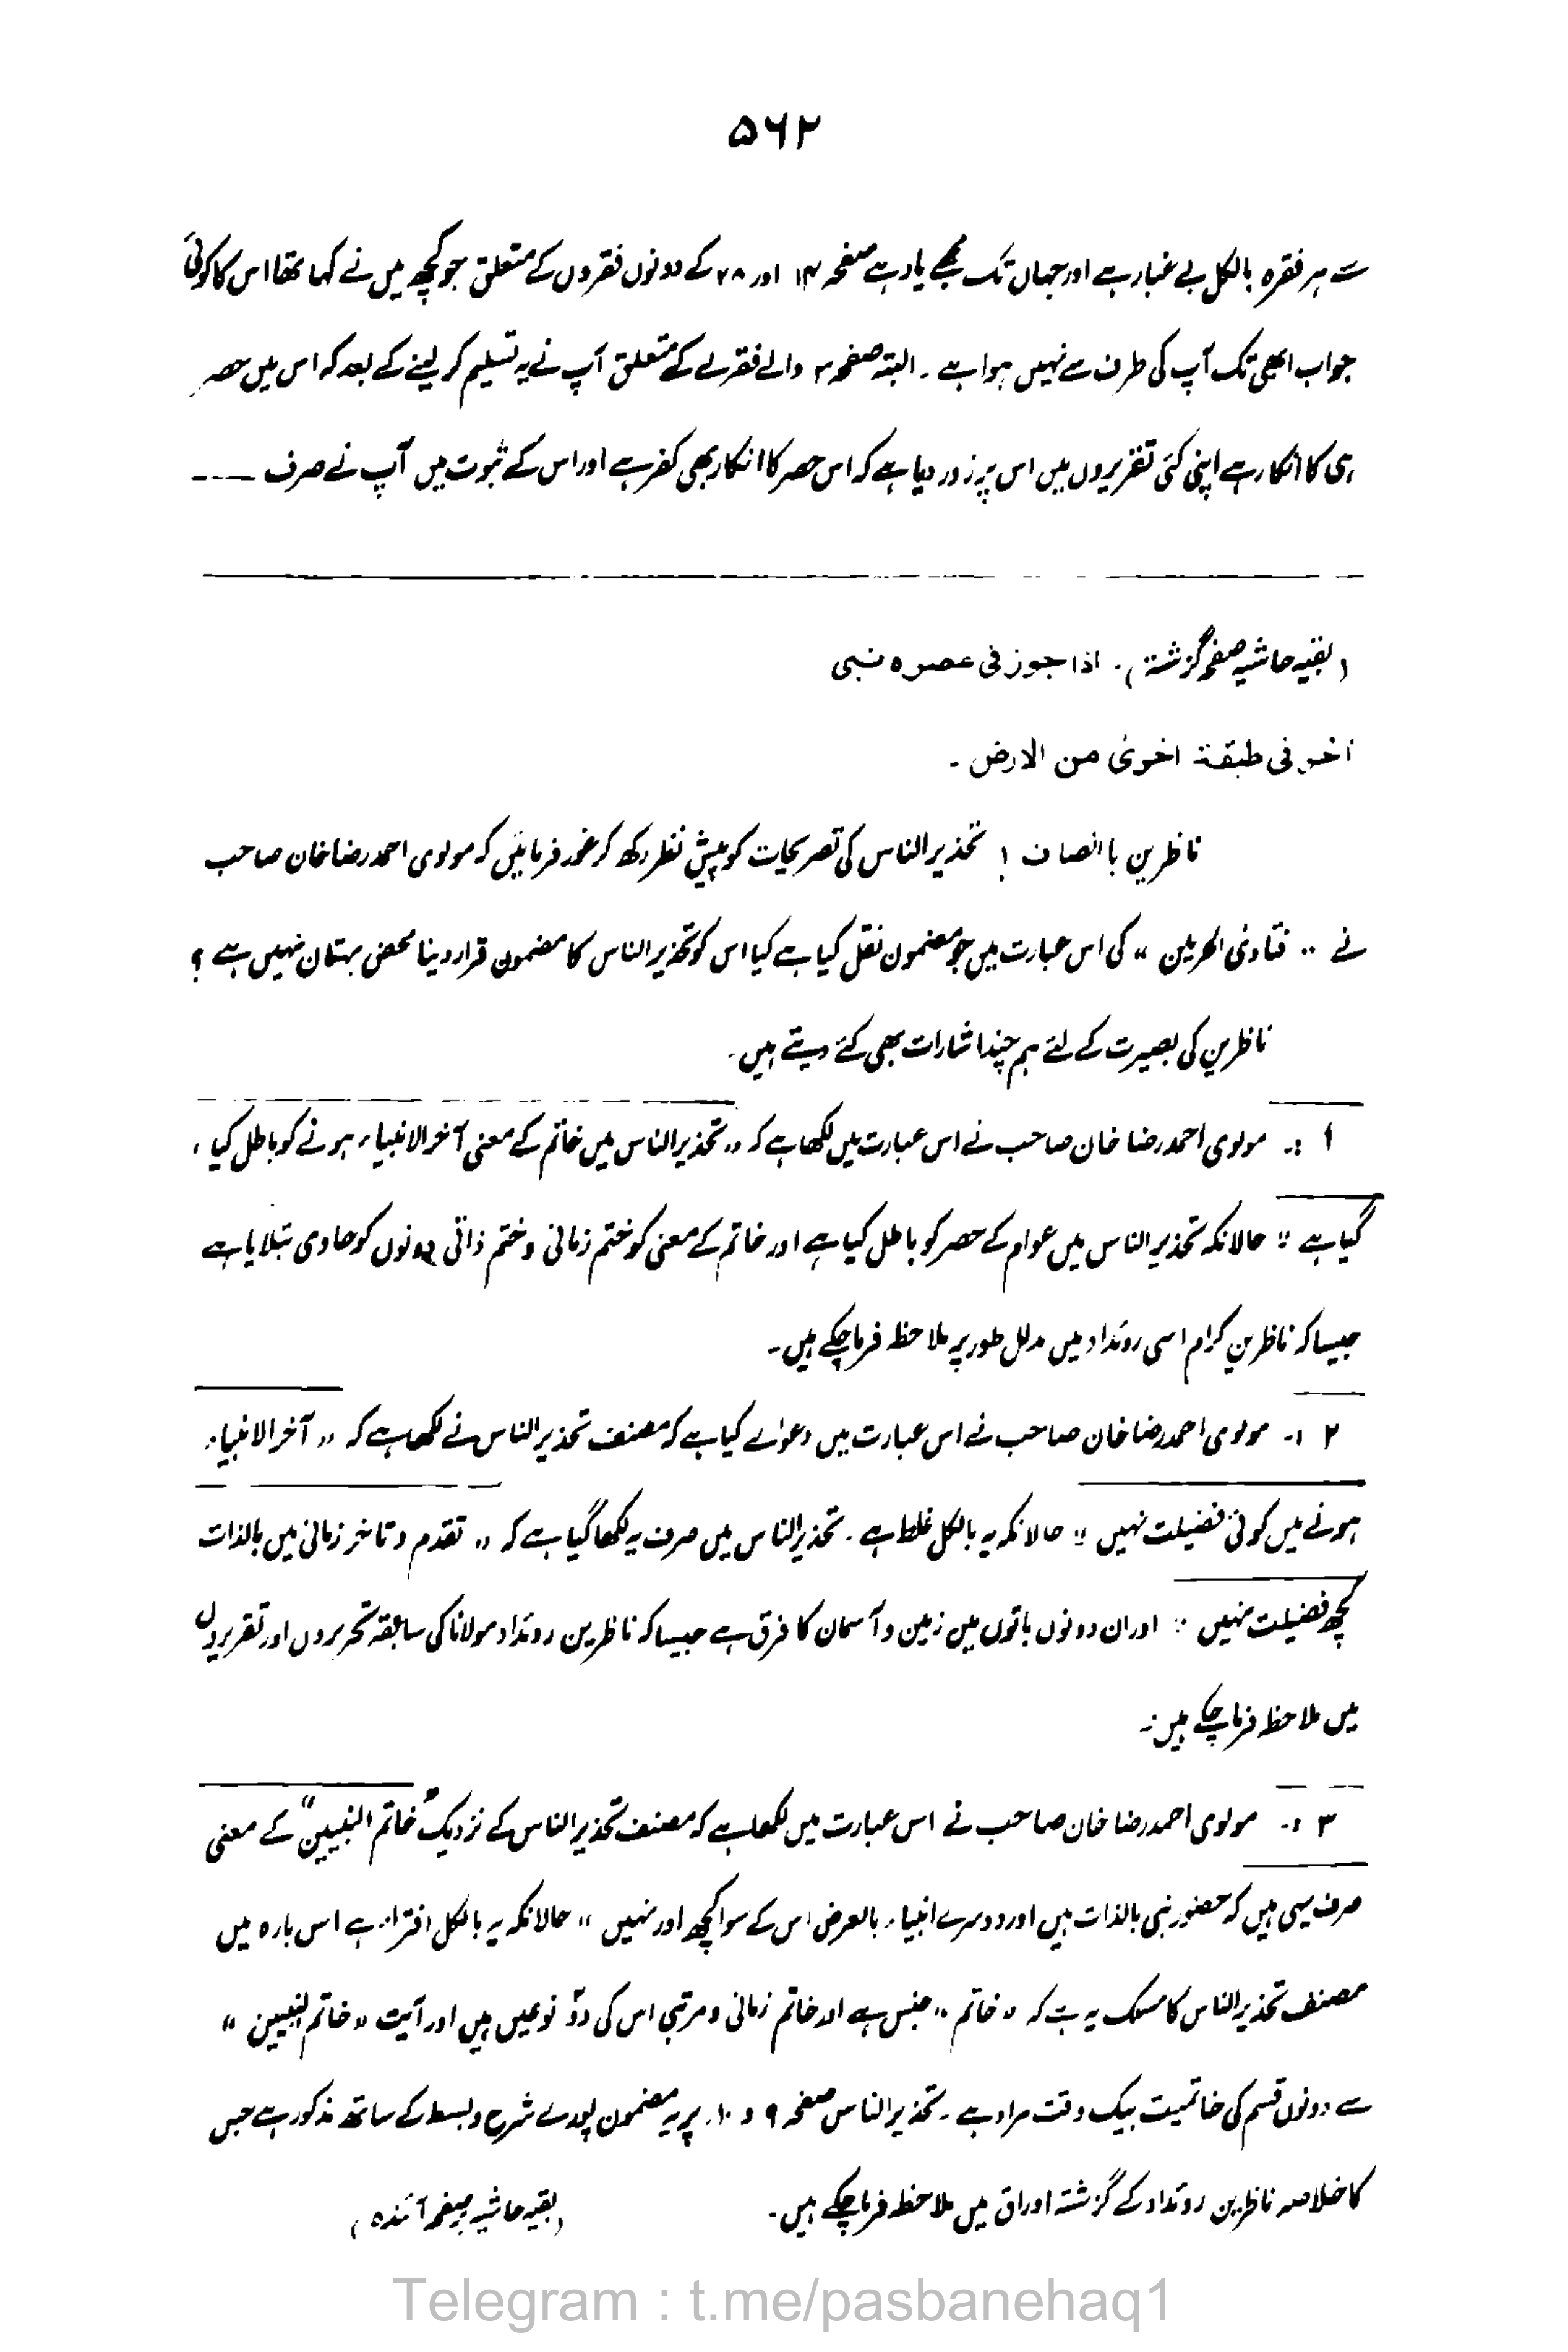 ۵۶۲
سے ہر فقرہ بالکل بے غبار ہے اور جہاں تک مجھے یاد ہے صفحہ ۱۴ اور ۲۸ کے دونوں فقروں کے متعلق جو کچھ میں نے کہا تھا اس کا کوئی
جواب ابھی تک آپ کی طرف سے نہیں ہوا ہے ۔ البتہ صفحہ ۳ والے فقرے کے متعلق آپ نے یہ تسلیم کر لینے کے بعد کہ اس میں حصر
ہی کا انکار ہے اپنی کئی تقریروں میں اس پر زور دیا ہے کہ اس حصر کا انکار بھی کفر ہے اور اس کے ثبوت میں آپ نے صرف ۔۔۔۔
(بقیہ حاشیہ صفحہ گزشتہ) ۔ اذا جوز فی عصرہ نبی
آخر فی طبقۃ اخریٰ من الارض ۔
ناظرین باانصاف ! تحذیر الناس کی تصریحات کو پیش نظر رکھ کر غور فرمائیں کہ مولوی احمد رضا خان صاحب
نے ،، فتاویٰ الحرمین ،، کی اس عبارت میں جو مضمون نقل کیا ہے کیا اس کو تحذیر الناس کا مضمون قرار دینا محض بہتان نہیں ہے ؟
ناظرین کی بصیرت کے لئے ہم چند اشارات بھی کئے دیتے ہیں ۔
۱ :۔ مولوی احمد رضا خان صاحب نے اس عبارت میں لکھا ہے کہ ،، تحذیر الناس میں خاتم کے معنی آخر الانبیاء ہونے کو باطل کیا ،
گیا ہے ،، حالانکہ تحذیر الناس میں عوام کے حصر کو باطل کیا ہے اور خاتم کے معنی کو ختم زمانی و ختم ذاتی دونوں کو حاوی بتلایا ہے
جیسا کہ ناظرین کرام اسی روئداد میں مدلل طور پر ملاحظہ فرما چکے ہیں ۔
۲ :۔ مولوی احمد رضا خان صاحب نے اس عبارت میں دعوائے کیا ہے کہ مصنف تحذیر الناس نے لکھا ہے کہ ،، آخر الانبیاء
ہونے میں کوئی فضیلت نہیں ،، حالانکہ یہ بالکل غلط ہے ۔ تحذیر الناس میں صرف یہ لکھا گیا ہے کہ ،، تقدم و تاخر زمانی میں بالذات
کچھ فضیلت نہیں ،، اور ان دونوں باتوں میں زمین و آسمان کا فرق ہے جیسا کہ ناظرین روئداد مولانا کی سابقہ تحریروں اور تقریروں
میں ملاحظہ فرما چکے ہیں :۔
۳ :۔ مولوی احمد رضا خان صاحب نے اس عبارت میں لکھا ہے کہ مصنف تحذیر الناس کے نزدیک ”خاتم النبیین“ کے معنی
صرف یہی ہیں کہ حضور نبی بالذات ہیں اور دوسرے انبیاء بالعرض اس کے سوا کچھ اور نہیں ،، حالانکہ یہ بالکل افترا ہے اس بارہ میں
مصنف تحذیر الناس کا مسلک یہ ہے کہ ،، خاتم ،، جنس ہے اور خاتم زمانی و مرتبی اس کی دو نوعیں ہیں اور آیت ،، خاتم النبیین ،،
سے دونوں قسم کی خاتمیت بیک وقت مراد ہے ۔ تحذیر الناس صفحہ ۹ و ۱۰ پر یہ مضمون پورے شرح و بسط کے ساتھ مذکور ہے جس
کا خلاصہ ناظرین روئداد کے گزشتہ اوراق میں ملاحظہ فرما چکے ہیں ۔ (بقیہ حاشیہ بصفحہ آئندہ)
Telegram : t.me/pasbanehaq1